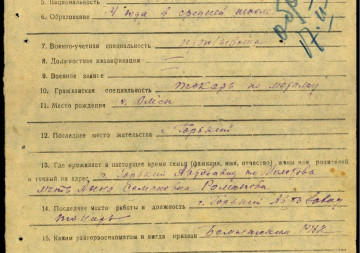 5. Национальность
6. Образование 4 года в средней школе
7. Военно-учетная специальность
8. Должностная квалификация —
9. Военное звание —
10. Гражданская специальность токарь по металлу
11. Место рождения г. Омск
12. Последнее место жительства г. Горький
13. Где проживает в настоящее время семья (фамилия, имя, отчество) жены или родителей
и точный их адрес г. Горький Автозавод
мать Анна Семеновна Романова
14. Последнее место работы и должность г. Горький Автозавод
токарь
15. Каким райгорвоенкоматом и когда призван РВК